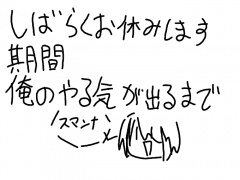 しばらくお休みします
期間
俺のやる気が出るまで
スマンナ